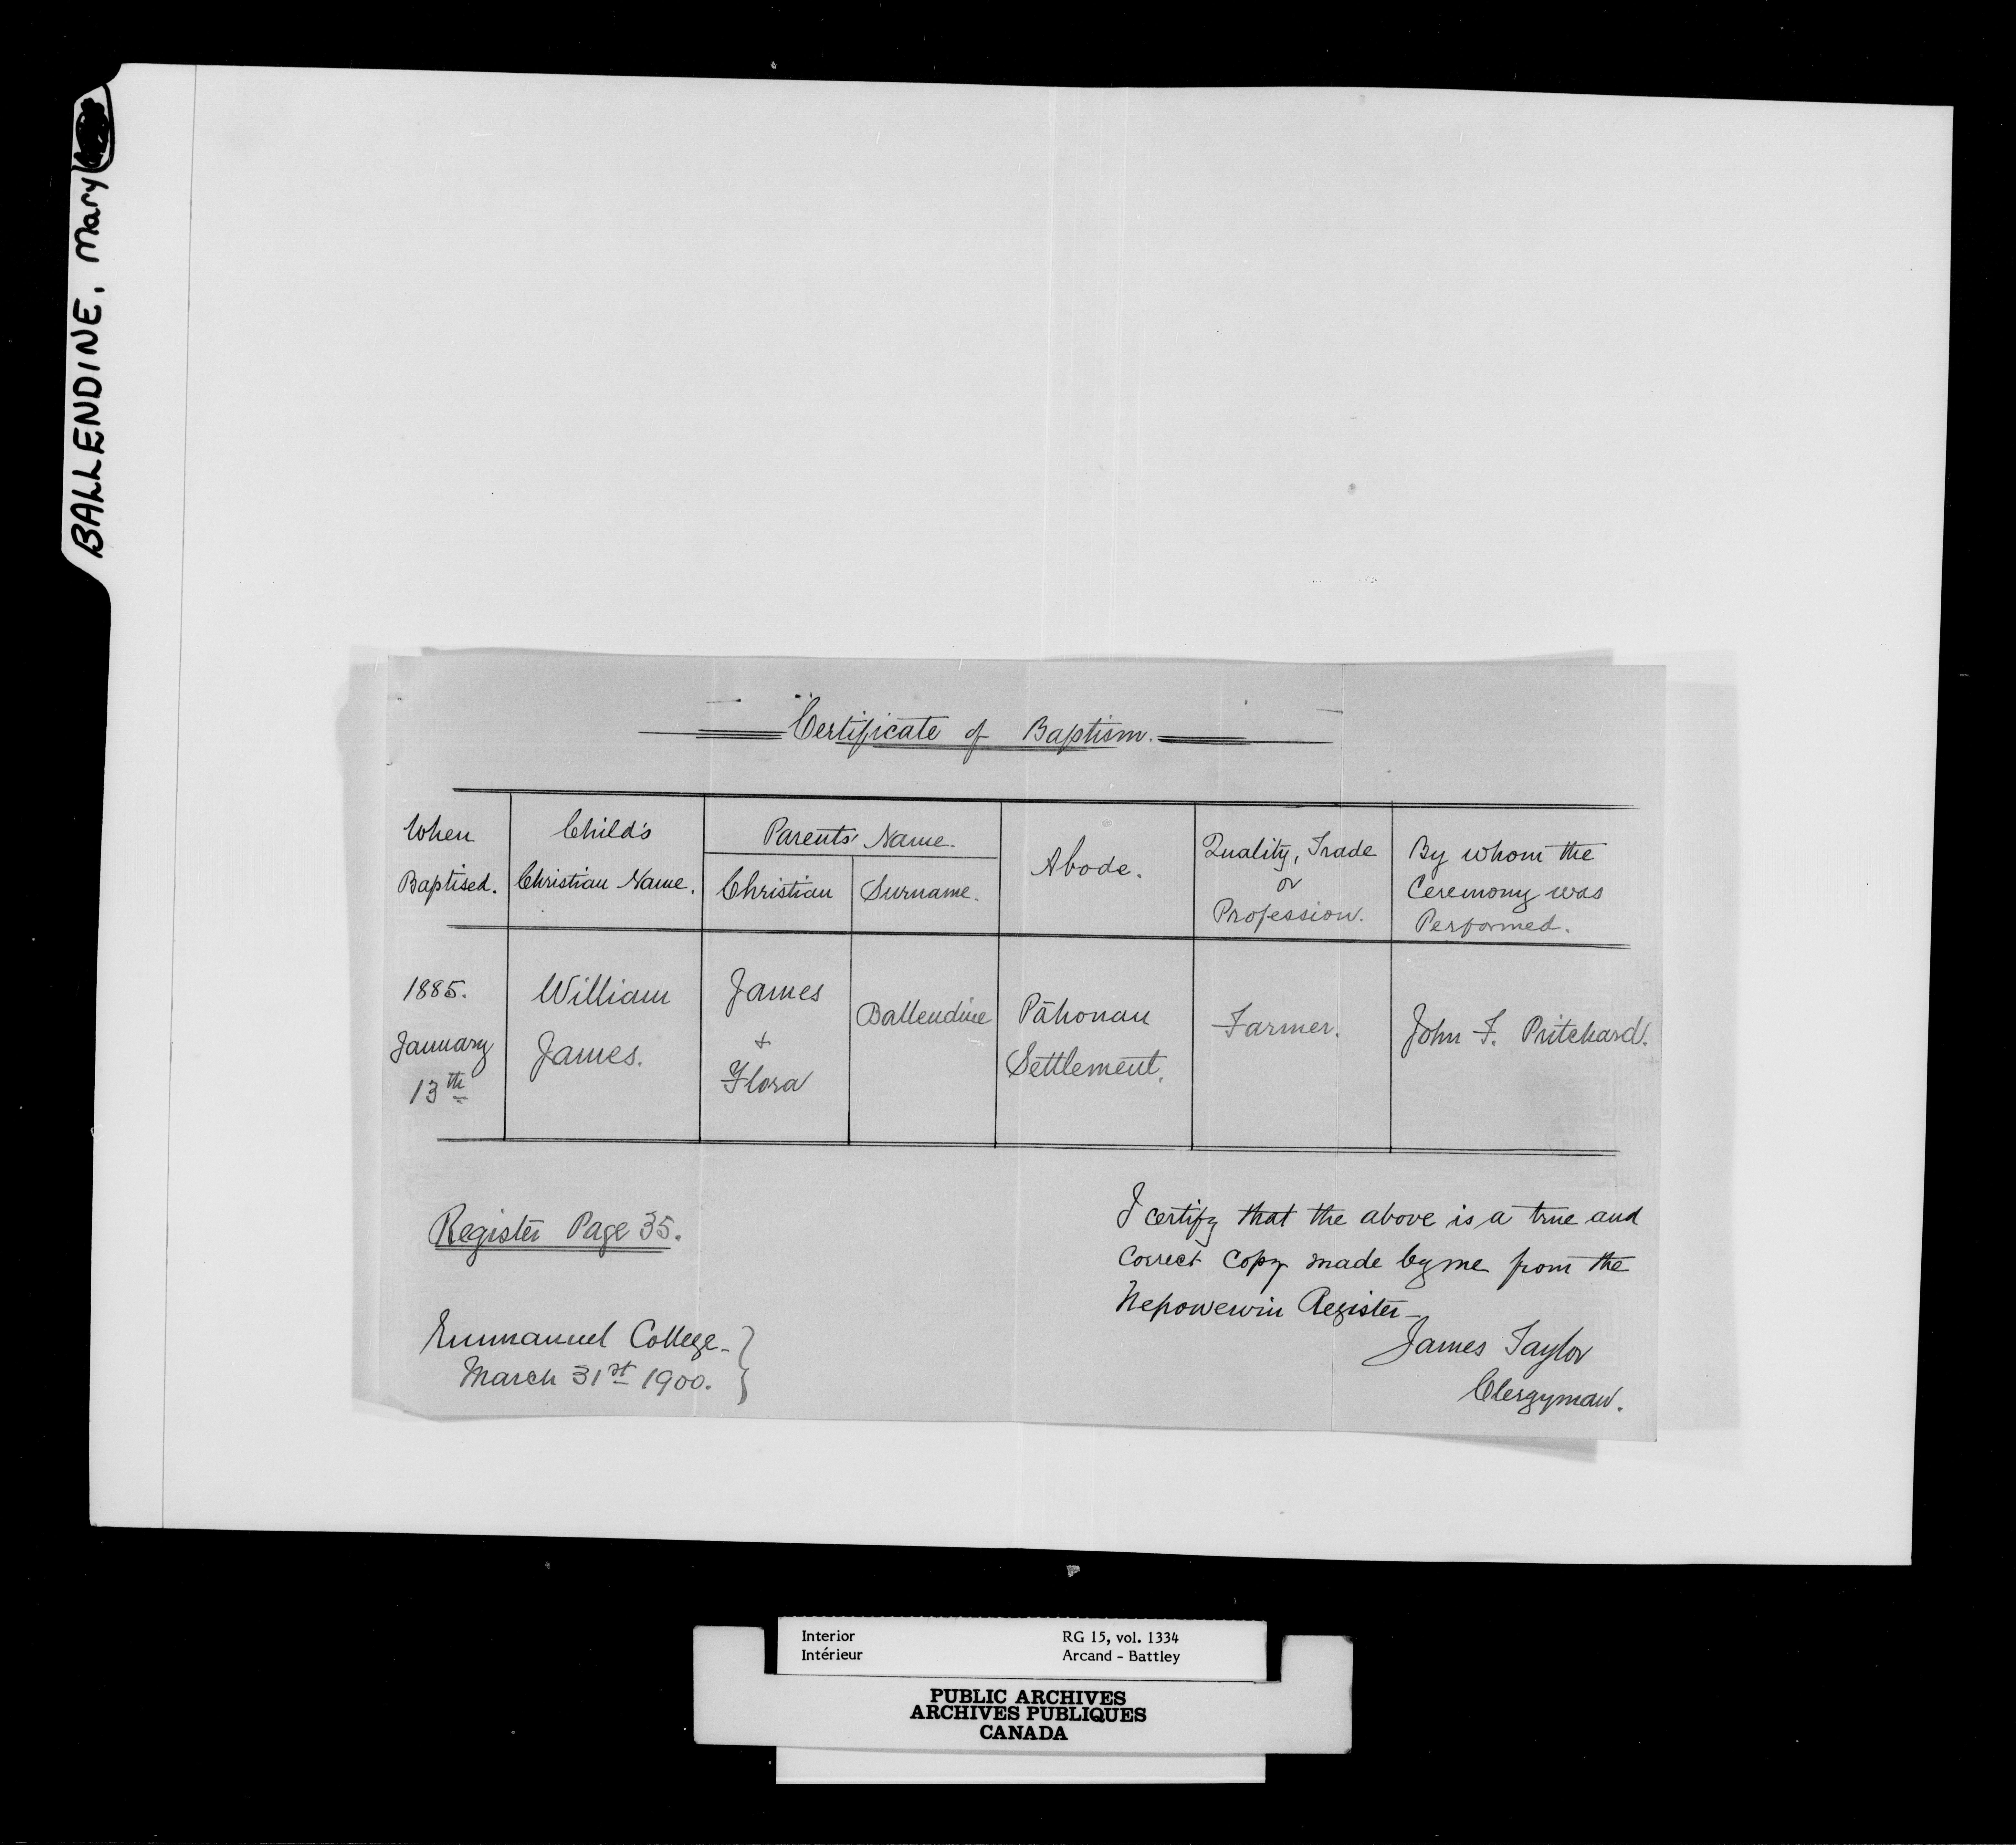 BALLENDINE, Mary
Certificate of Baptism.
When Baptised.
Child's Christian Name.
Parents' Name.
Christian
Surname.
Abode.
Quality, Trade or Profession.
By whom the Ceremony was Performed.
1885. January 13th
William James.
James + Flora
Ballendine
Pāhonan Settlement.
Farmer.
John F. Pritchard.
Register Page 35.
I certify that the above is a true and
correct copy made by me from the
Nepowewin Register
James Taylor
Clergyman.
Emmanuel College
March 31st 1900.
Interior RG 15, vol. 1334
Intérieur Arcand - Battley
PUBLIC ARCHIVES
ARCHIVES PUBLIQUES
CANADA